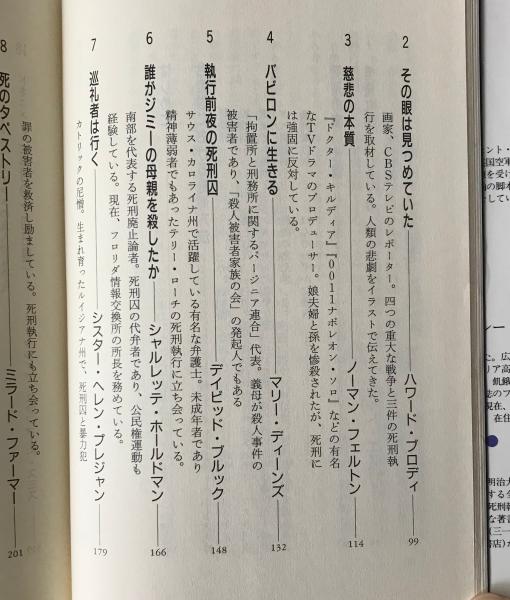 2 その眼は見つめていた――ハワード・ブロディ 99
画家、CBSテレビのレポーター。四つの重大な戦争と三件の死刑執
行を取材している。人類の悲劇をイラストで伝えてきた。
3 慈悲の本質――ノーマン・フェルトン 114
『ドクター・キルディア』『0011ナポレオン・ソロ』などの有名
なTVドラマのプロデューサー。娘夫婦と孫を惨殺されたが、死刑に
は強固に反対している。
4 バビロンに生きる――マリー・ディーンズ 132
「拘置所と刑務所に関するバージニア連合」代表。義母が殺人事件の
被害者であり、「殺人被害者家族の会」の発起人でもある
5 執行前夜の死刑囚――デイビッド・ブルック 148
サウス・カロライナ州で活躍している有名な弁護士。未成年者であり
精神薄弱者でもあったテリー・ローチの死刑執行に立ち会っている。
6 誰がジミーの母親を殺したか――シャルレッテ・ホールドマン 166
南部を代表する死刑廃止論者。死刑囚の代弁者であり、公民権運動も
経験している。現在、フロリダ情報交換所の所長を務めている。
7 巡礼者は行く――シスター・ヘレン・プレジャン 179
カトリックの尼僧。生まれ育ったルイジアナ州で、死刑囚と暴力犯
罪の被害者を救済し励ましている。死刑執行にも立ち会っている。
8 死のタペストリー――ミラード・ファーマー 201